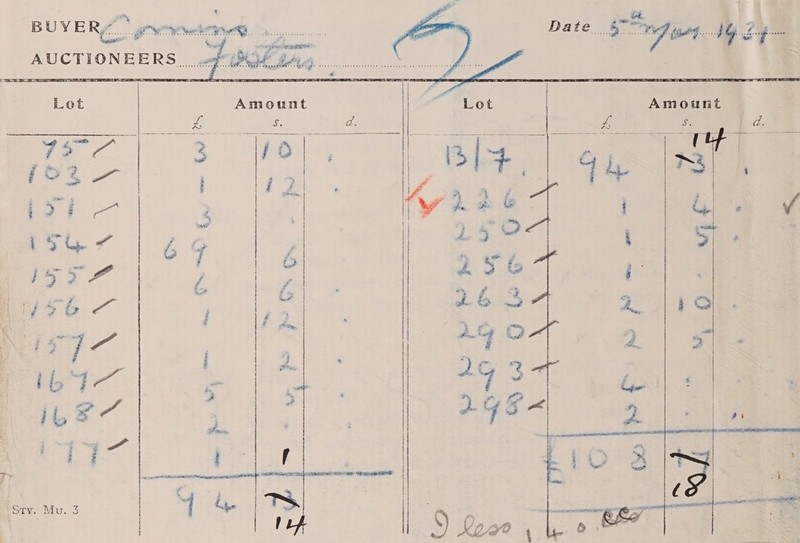 BUYER Comins.
Date 5th May 1931
AUCTIONEERS Fosters.
Lot Amount
£ s. d.
75 3 10 .
103 1 12 .
151 3 .
154 69 6
155 6 6
156 1 12 .
157 1 2 .
167 5 5
168 2 . .
177 1 1 .
94 13
14
STY. MU. 3
Lot Amount
£ s. d.
14
B/7. 94 13 .
226 1 4 .
250 1 5 .
256 1 .
263 2 10 .
290 2 5 .
293 4 .
298 2 . ..
£108 17
18
less 1 4 0